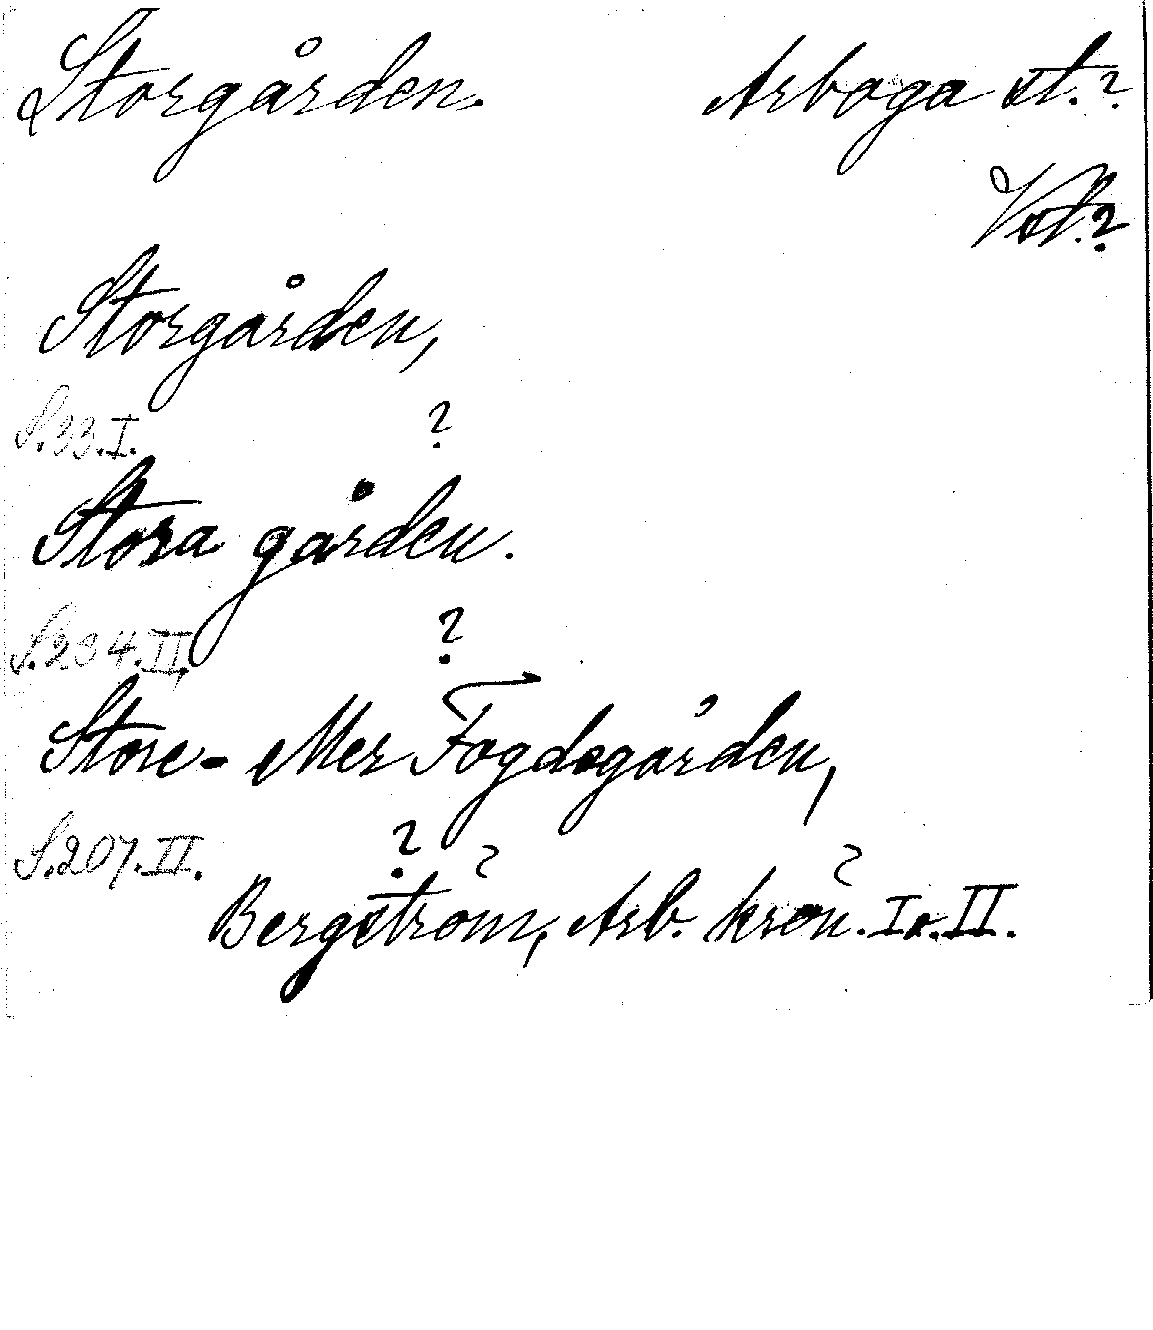 Storgården. Arboga st.?
Vstl.?
Storgården,
S.33.I. ?
Stora gården.
S.234.II. ?
Store- Mer Fogdegården,
S.207.II. ?
Bergström, Arb. krön. I o. II.